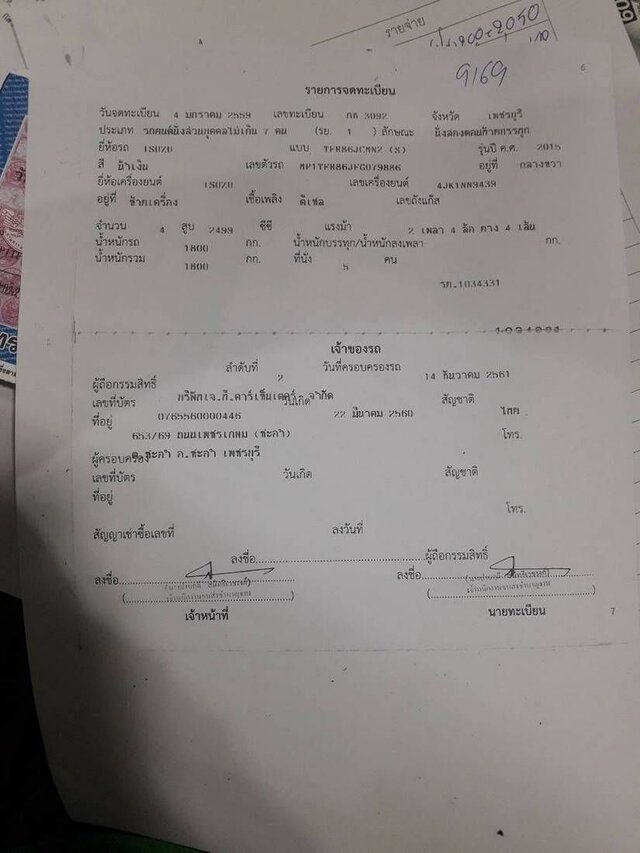 รายจ่าย
9169
6
รายการจดทะเบียน
วันจดทะเบียน 4 มกราคม 2559 เลขทะเบียน กท 3092 จังหวัด เพชรบุรี
ประเภท รถยนต์นั่งส่วนบุคคลไม่เกิน 7 คน (รย. 1 ) ลักษณะ นั่งสองตอนท้ายบรรทุก
ยี่ห้อรถ ISUZU แบบ TFR86JCMN2 (S) รุ่นปี ค.ศ. 2015
สี น้ำเงิน เลขตัวรถ MP1TFR86JFG079886 อยู่ที่ กลางขวา
ยี่ห้อเครื่องยนต์ ISUZU เลขเครื่องยนต์ 4JK1NN9439
อยู่ที่ ซ้ายเครื่อง เชื้อเพลิง ดีเซล เลขถังแก๊ส
จำนวน 4 สูบ 2499 ซีซี แรงม้า 2 เพลา 4 ล้อ ยาง 4 เส้น
น้ำหนักรถ 1800 กก. น้ำหนักบรรทุก/น้ำหนักลงเพลา กก.
น้ำหนักรวม 1800 กก. ที่นั่ง 5 คน
รย.1034331
เจ้าของรถ
ลำดับที่ 2 วันที่ครอบครองรถ 14 ธันวาคม 2561
ผู้ถือกรรมสิทธิ์ บริษัทเจ.ที.คาร์เซ็นเตอร์ จำกัด
เลขที่บัตร 0765560000446 วันเกิด 22 มีนาคม 2560 สัญชาติ ไทย
ที่อยู่ 653/69 ถนนเพชรเกษม (ชะอำ) โทร.
ต.ชะอำ อ.ชะอำ เพชรบุรี
ผู้ครอบครอง
เลขที่บัตร วันเกิด สัญชาติ
ที่อยู่
โทร.
สัญญาเช่าซื้อเลขที่ ลงวันที่
ลงชื่อ ผู้ถือกรรมสิทธิ์
ลงชื่อ ลงชื่อ
เจ้าหน้าที่ นายทะเบียน
7